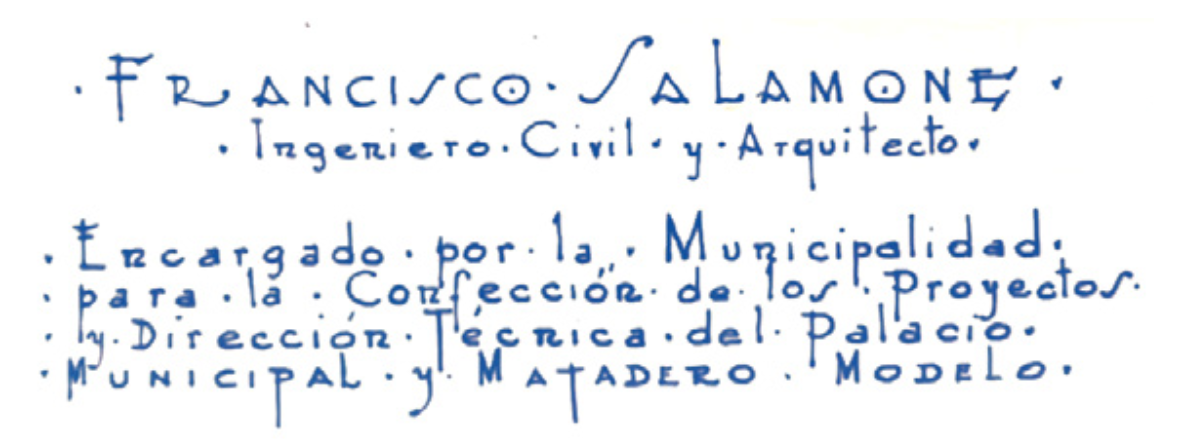 · FRANCISCO · SALAMONE ·
· Ingeniero · Civil · y · Arquitecto ·
· Encargado · por · la · Municipalidad ·
· para · la · Confección · de · los · Proyectos ·
· y · Dirección · Técnica · del · Palacio ·
· MUNICIPAL · y · MATADERO · MODELO ·